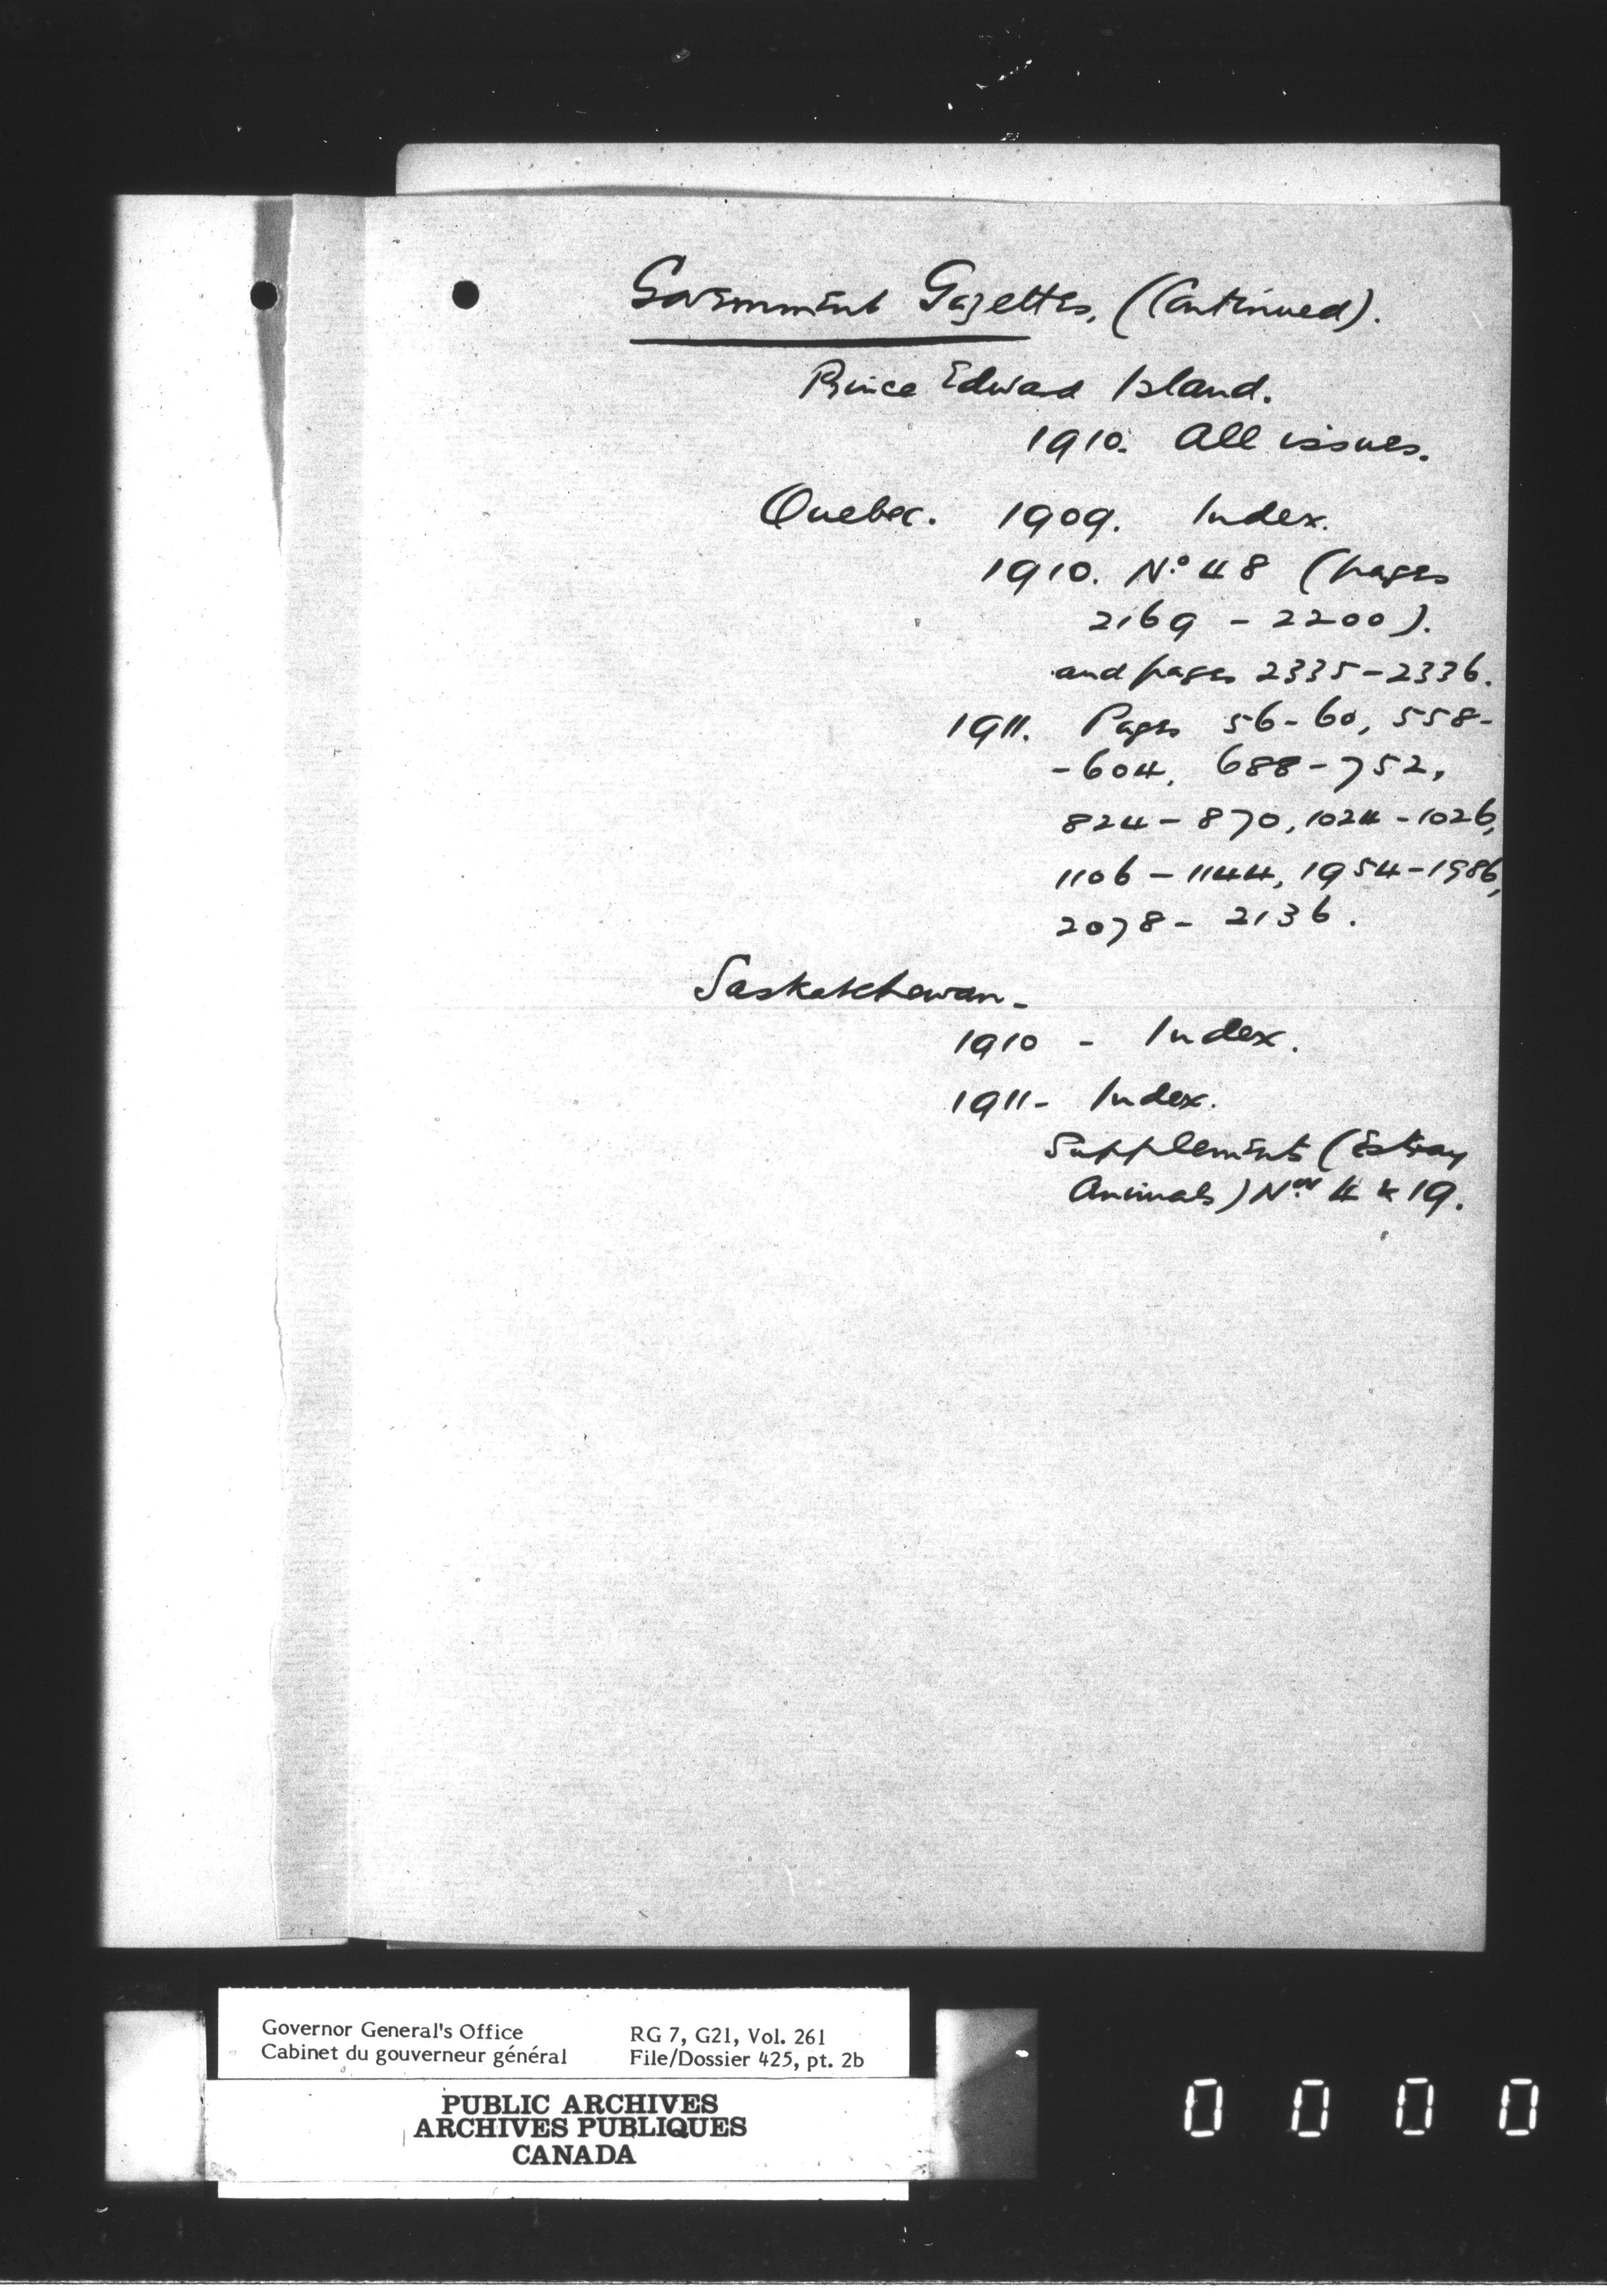 Government Gazettes, (Continued).
Prince Edward Island.
1910. All issues.
Quebec. 1909. Index.
1910. No. 48 (pages
2169 - 2200).
and pages 2335-2336.
1911. Pages 56-60, 558-
-604, 688-752,
824-870, 1024-1026,
1106-1144, 1954-1986,
2078- 2136.
Saskatchewan-
1910 - Index.
1911- Index.
Supplements (Estray
Animals) Nos. 4 & 19.
Governor General's Office
Cabinet du gouverneur général
RG 7, G21, Vol. 261
File/Dossier 425, pt. 2b
PUBLIC ARCHIVES
ARCHIVES PUBLIQUES
CANADA
0 0 0 0